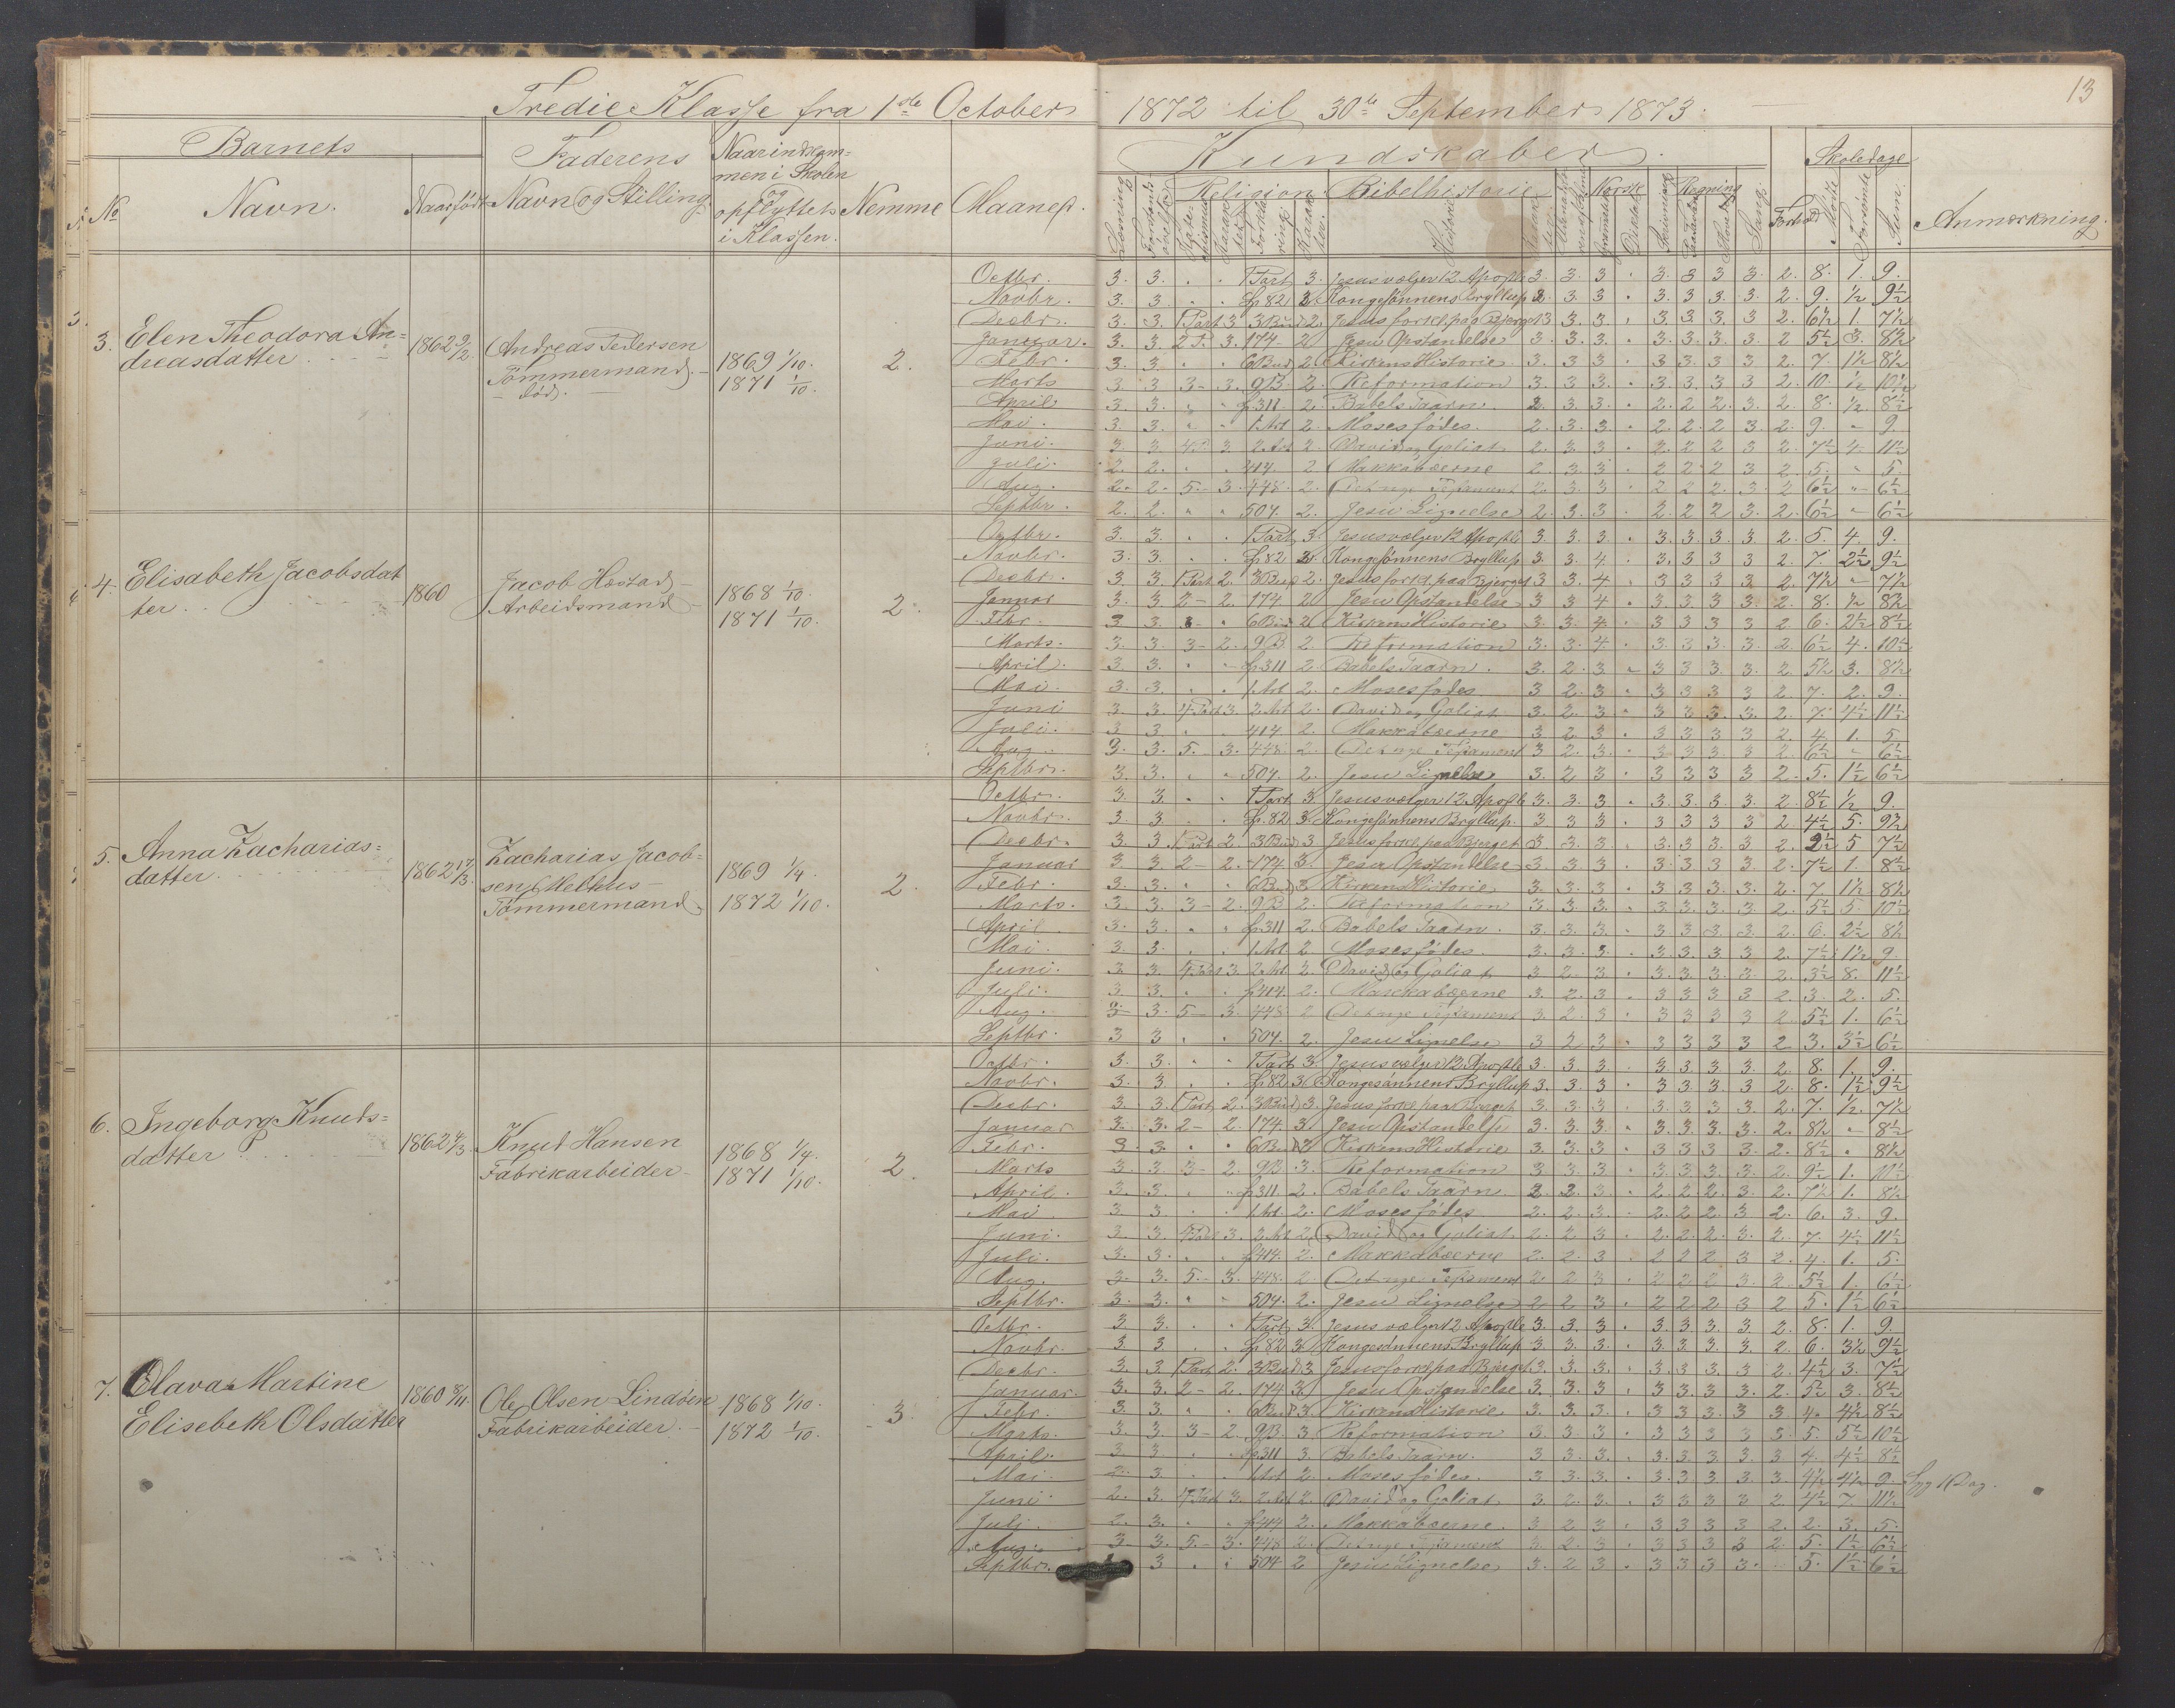 13
Tredie Klasse fra 1ste October 1872 til 30te September 1873.
Barnets
Faderens
Naar indkom=
men i Skolen
og
opflyttet
i Klassen.
Kundskaber.
Skoledage
No
Navn.
Naar født
Navn og Stilling
Nemme
Maaned.
Religion
Bibelhistorie
Norsk
Regning
Sang
Forhold
Anmærkning.
3. Elen Theodora An=
dreasdatter
1862 9/2
Andreas Pedersen
Tömmermand
död.
1869 1/10.
1871 1/10.
2.
Octbr. 3. 3. 1 Part 3. Jesus vælger 12 Apostle 3. 3. 3 3. 3 3 3. 2. 8. 1. 9.
Novbr. 3. 3 p 82 3 Kongesönnens Bryllup 3. 3. 3 3. 3. 3. 3. 2. 9. 1/2 9 1/2
Decbr. 3. 3. 1 Part 3 3 Bud 2. Jesus forkl. paa Bjerget 3 3. 3. 3. 3. 3. 3 2. 6 1/2 1. 7 1/2
Januar. 3. 3 2 P. 3. 174 2 Jesu Opstandelse 3. 3. 3. 3. 3. 3. 3. 2 5 1/2 3. 8 1/2
Febr. 3. 3 6 Bud 2 Kirkens Historie 3. 3. 3 3. 3. 3. 3 2. 7. 1 1/2 8 1/2
Marts 3 3 3 3. 9 B. 2. Reformation 3. 3 3. 3. 3. 3 3 2. 10. 1/2 10 1/2
April 3. 3. p 311. 2. Babels Taarn. 2. 3. 3. 2. 2 2. 3. 2. 8. 1/2. 8 1/2
Mai. 3. 3. 1. Art 2. Moses födes. 2. 3. 3. 2. 2. 2 3 2. 9. 9
Juni. 3. 3. 4 P. 3. 2. Art 2. David og Goliat 2. 3. 3. 2. 2. 2 3 2. 7 1/2 4. 11 1/2
Juli. 2. 2. 414. 2 Makkabæerne 2. 3. 3 2 2 2 3 2. 5. 5.
Aug. 2. 2. 5. 3. 448. 2. Det nye Testament 2. 3. 3 2 2 2. 3. 2 6 1/2 6 1/2
Septbr. 2. 2. 504. 2. Jesu Lignelse 2. 3. 3 2. 2 2 3. 2. 6 1/2 6 1/2
4. Elisabeth Jacobsdat
ter.
1860
Jacob Hæstad
Arbeidsmand
1868 1/10.
1871 1/10.
2.
Octbr. 3. 3. 1 Part 3. Jesus vælger 12 Apostle 3. 3. 3. 3. 3. 3. 3 2. 5. 4. 9.
Novbr. 3. 3 p 82 3 Kongesönnens Bryllup 3. 3. 4 3. 3 3 3 2. 7. 2 1/2 9 1/2
Decbr. 3 3. 1 Part 2. 3 Bud 2. Jesus forkl. paa Bjerget 3 3. 4 3 3 3 3 2. 7 1/2 7 1/2
Januar 3. 3. 2 2. 174. 2 Jesu Opstandelse 3 3 4 3. 3 3 3. 2. 8. 1/2 8 1/2
Febr. 3 3. 6 Bud 2 Kirkens Historie 3. 3. 4 3 3 3 3 2. 6. 2 1/2 8 1/2
Marts. 3. 3. 3 2. 9 B. 2. Reformation 3. 3. 4 3 3. 3 3. 2 6 1/2 4. 10 1/2
April. 3 3. p 311 2 Babels Taarn. 3. 2. 3 3 3 3 3. 2. 5 1/2 3. 8 1/2
Mai. 3. 3. 1. Art 2. Moses födes 3 2. 3 3 3 3 3 2. 7. 2. 9.
Juni 3. 3. 4 Part 3. 2. Art 2. David og Goliat 3. 2. 3 3 3 3. 3. 2. 7. 4 1/2 11 1/2
Juli. 3 3. 414 2. Makkabæerne 3 2 3 3 3 3 3 2. 4. 1. 5
Aug. 3. 3. 5. 3. 448. 2. Det nye Testament 3 2. 3. 3 3 3. 3 2. 6 1/2 6 1/2
Septbr. 3. 3. 504. 2. Jesu Lignelse 3. 2 3 3 3 3 3 2. 5. 1 1/2 6 1/2
5. Anna Zacharias=
datter
1862 17/3.
Zacharias Jacob=
sen Melhus
Tömmermand
1869 1/4.
1872 1/10.
2.
Octbr. 3 3. 1 Part 3 Jesus vælger 12 Apostle 3. 3. 3 3. 3. 3. 3. 2. 8 1/2 1/2 9.
Novbr. 3. 3. p. 82 3. Kongesönnens Bryllup. 3 3 3 3 3 3 3 2. 4 1/2 5. 9 1/2
Decbr. 3 3. 1 Part 2. 3 Bud 3 Jesus forkl. paa Bjerget 3 3. 3. 3. 3. 3. 3 2. 2 1/2 5 7 1/2
Januar 3 3. 2 2. 174 3. Jesu Opstandelse 3 3. 3 3. 3 3 3 2. 7 1/2 1. 8 1/2
Febr. 3. 3. 6 Bud 3. Kirkens Historie 3. 3. 3 3 3. 3. 3. 2. 7. 1 1/2 8 1/2
Marts. 3. 3. 3 2. 9 B 2. Reformation 3. 3. 3. 3. 3. 3. 3. 2. 5 1/2 5. 10 1/2
April 3. 3. p 311 2. Babels Taarn. 3. 3. 3. 3 3 3. 3. 2. 6. 2 1/2 8 1/2
Mai. 3 3. 1. Art 2. Moses födes. 3. 3. 3. 3. 3. 3. 3 2. 7 1/2 1 1/2 9.
Juni. 3 3. 4 Part 3. 2. Art 2. David og Goliat 3 2. 3 3. 3. 3. 3. 2. 3 1/2 8. 11 1/2
Juli. 3 3. p 414. 2. Makkabæerne 3. 2. 3 3 3 3 3 2. 3. 2. 5.
Aug. 3 3. 5 3. 448. 2 Det nye Testament 3. 2. 3 3 3 3 3 2. 5 1/2 1. 6 1/2
Septbr. 3 3 504. 2. Jesu Lignelse 3 2 3 3 3 3 3 2 3. 3 1/2 6 1/2
6. Ingeborg Knuds=
datter
1862 4/3.
Knud Hansen
Fabrikarbeider
1868 1/4.
1871 1/10.
2.
Octbr. 3. 3. 1 Part 3. Jesus vælger 12 Apostle 3. 3 3. 3. 3. 3 3. 2 8. 1. 9.
Novbr. 3. 3 p 82 3 Kongesönnens Bryllup 3. 3. 3 3 3 3. 3 2. 8. 1 1/2 9 1/2
Decbr. 3. 3. 1 Part 2. 3 Bud 3. Jesus forkl. paa Bjerget 3. 3. 3 3. 3. 3 3. 2. 7. 1/2. 7 1/2
Januar 3. 3. 2 2. 174. 3. Jesu Opstandelse 3. 3. 3 3. 3. 3. 3. 2. 8 1/2 8 1/2
Febr. 3. 3. 6 Bud 3 Kirkens Historie 3. 3. 3 3 3 3 3. 2. 8 1/2 8 1/2
Marts 3. 3. 3 2. 9 B 3. Reformation 3 3 3 3. 3. 3. 3. 2 9 1/2 1. 10 1/2
April. 3. 3. p 311. 2. Babels Taarn. 2. 2. 3. 2. 2. 2. 3. 2. 7 1/2 1. 8 1/2
Mai 3. 3. 1. Art. 2. Moses födes 2. 2. 3. 2. 2 2 3 2. 6. 3. 9.
Juni. 3. 3. 4 Part 3. 2. Art 2. David og Goliat. 2. 2 3 2. 2. 2. 3. 2. 7. 4 1/2 11 1/2
Juli. 3. 3. p 414. 2. Makkabæerne 2. 2. 3 2 2 2 3 2. 4. 1. 5.
Aug. 3. 3. 5. 3. 448. 2. Det nye Testament 2. 2 3 2 2 2 3. 2. 5 1/2 1. 6 1/2
Septbr. 3. 3. 504. 2. Jesu Lignelse 2 2 3 2 2 2 3 2 5. 1 1/2 6 1/2
7. Olava Martine
Elisebeth Olsdatter
1860 8/11.
Ole Olsen Lindöen
Fabrikarbeider.
1868 1/10.
1872 1/10.
3.
Octbr. 3. 3. 1 Part 3. Jesus vælger 12 Apostle 3. 3. 3. 3. 3. 3. 3. 2. 8. 1. 9.
Novbr. 3 3 p 82 3 Kongesönnens Bryllup 3 3. 3. 3 3 3. 3. 2. 6. 3 1/2 9 1/2
Decbr. 3. 3. 1 Part 2. 3 Bud 3. Jesus forkl. paa Bjerget 3 3. 3. 3. 3. 3. 3 2. 4 1/2 3. 7 1/2
Januar. 3. 3. 2 2. 174 3 Jesu Opstandelse 3. 3. 3 3 3 3. 3. 2. 5 1/2 3. 8 1/2
Febr. 3. 3. 6 Bud 3. Kirkens Historie 3. 3. 3. 3 3 3. 3 3. 4. 4 1/2 8 1/2
Marts. 3. 3. 3 2. 9 B. 3 Reformation 3. 3. 3 3 3 3 3 3. 5. 5 1/2 10 1/2
April. 3 3. p 311 3. Babels Taarn. 3 3. 3. 3. 3 3. 3. 3 4. 4 1/2 8 1/2
Mai. 2. 3. 1. Art 2. Moses födes. 3 3. 3. 3. 3. 3. 3. 3. 4 1/2 4 1/2 9. Syg 1 Dag.
Juni 2. 3. 4 Part 3. 2. Art 2. David og Goliat. 3. 2. 3. 3 3 3 3 2. 4 1/2 7. 11 1/2
Juli. 2. 3. p 414 2. Makkabæerne. 3 2 3 3 3 3 3 2. 2. 3. 5.
Aug. 3. 3. 5. 3. 448. 2. Det nye Testament 3. 2. 3 3 3 3 3 2. 5. 1 1/2 6 1/2
Septbr. 3 504 2 Jesus Lignelse 3. 2 3 3 3 3 3. 5. 1 1/2 6 1/2